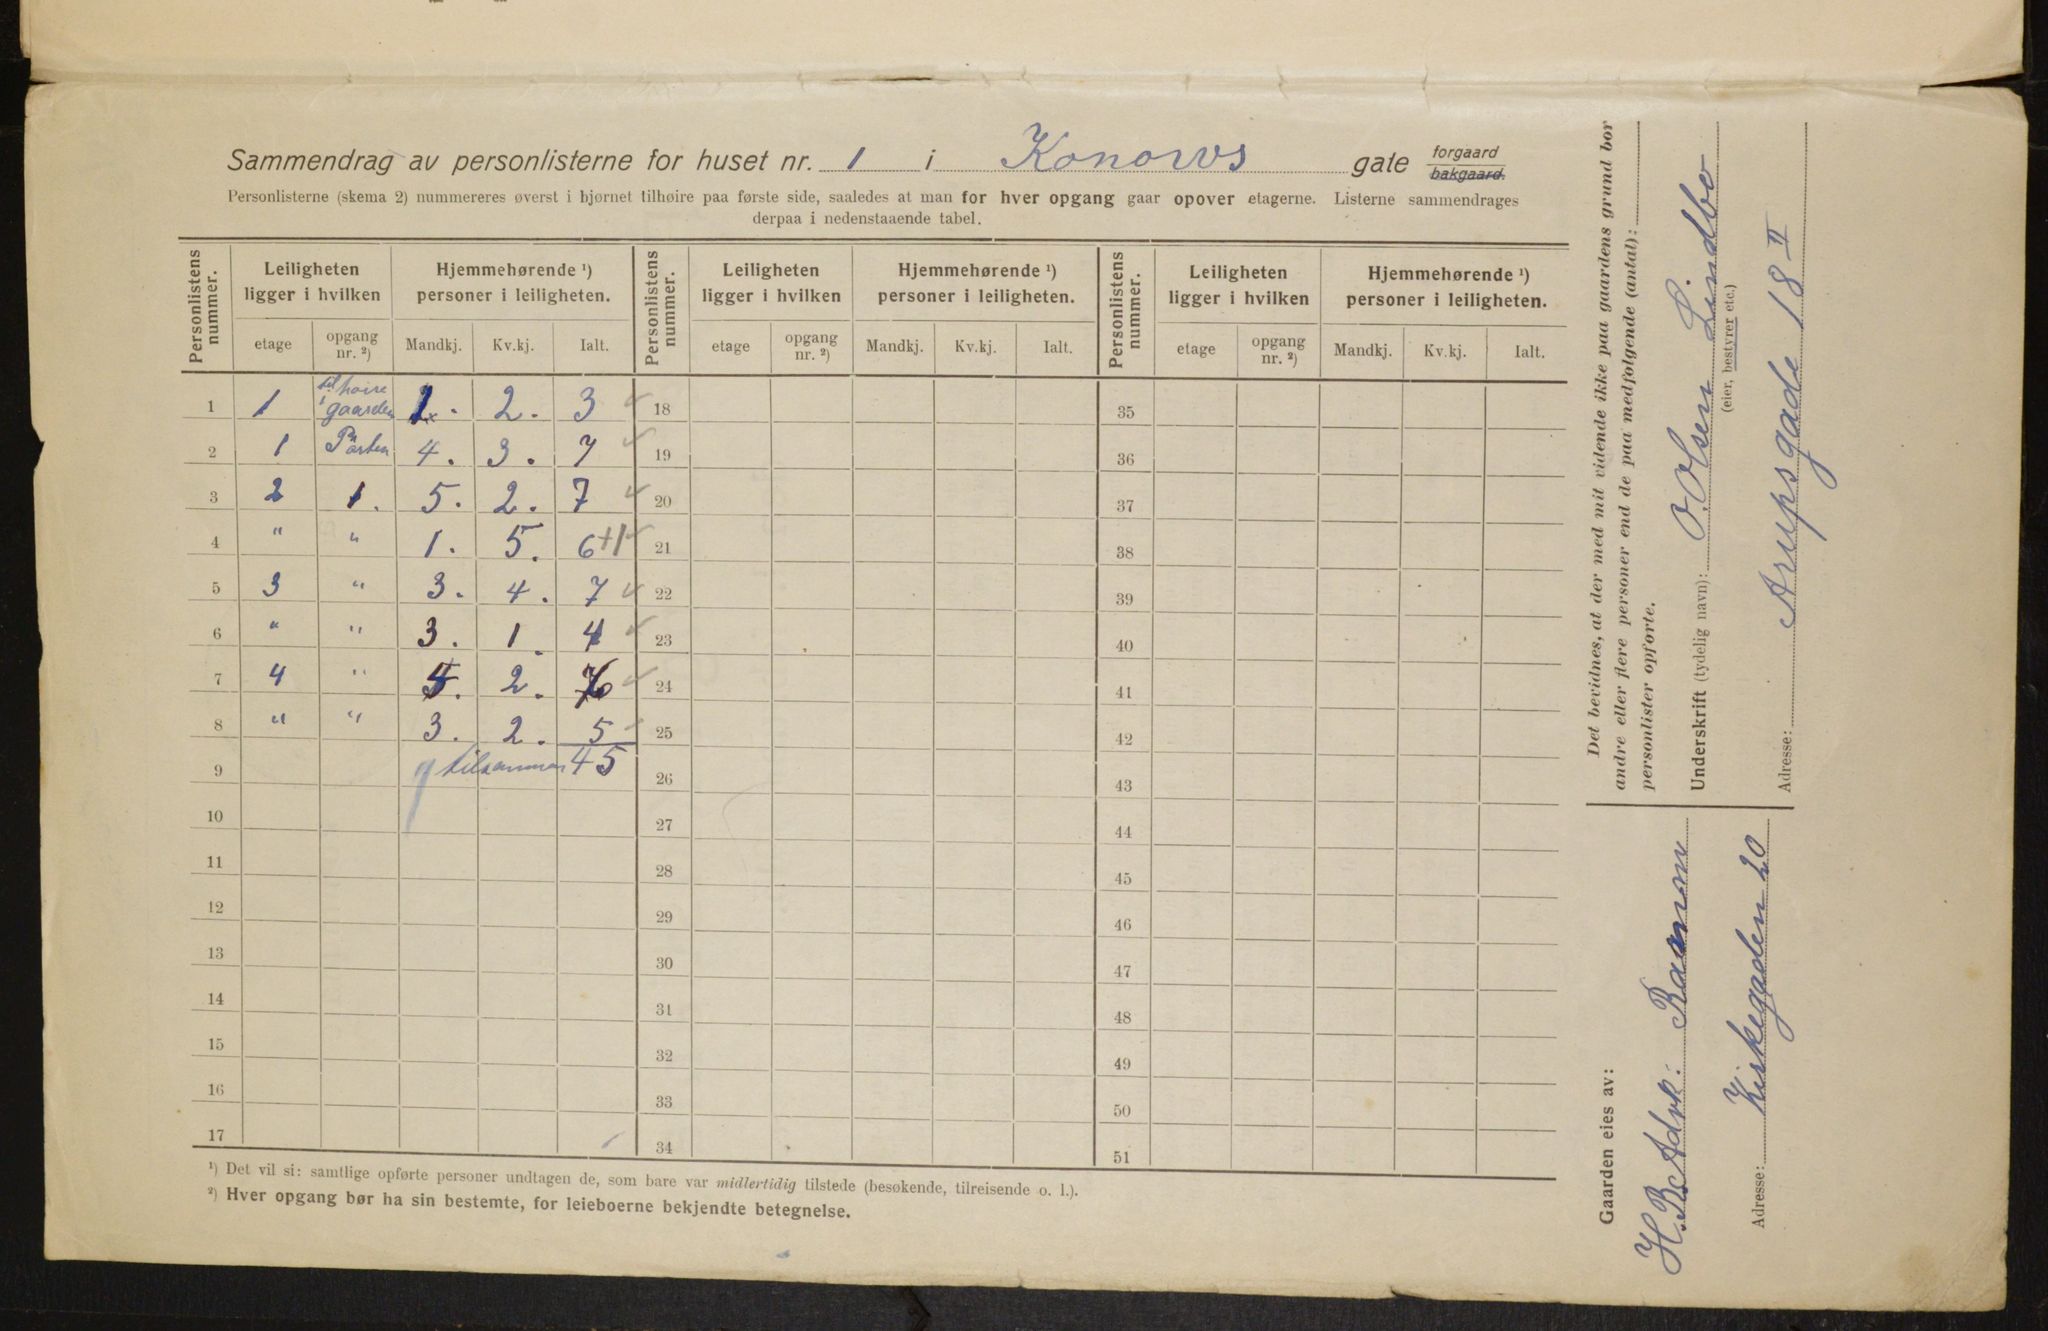 Sammendrag av personlisterne for huset nr. 1 i Konows gate forgaard bakgaard.
Personlisterne (skema 2) nummereres øverst i hjørnet tilhøire paa første side, saaledes at man for hver opgang gaar opover etagerne. Listerne sammendrages
derpaa i nedenstaaende tabel.
Personlistens nummer. Leiligheten ligger i hvilken Hjemmehørende ¹) personer i leiligheten. Personlistens nummer. Leiligheten ligger i hvilken Hjemmehørende ¹) personer i leiligheten. Personlistens nummer. Leiligheten ligger i hvilken Hjemmehørende ¹) personer i leiligheten.
etage opgang nr. ²) Mandkj. Kv.kj. Ialt. etage opgang nr. ²) Mandkj. Kv.kj. Ialt. etage opgang nr. ²) Mandkj. Kv.kj. Ialt.
1 1 til høire i gaarden 1. 2. 3 18 35
2 1 Porten 4. 3. 7 19 36
3 2 1. 5. 2. 7 20 37
4 " " 1. 5. 6+1 21 38
5 3 " 3. 4. 7 22 39
6 " " 3. 1. 4 23 40
7 4 " 4. 2. 6 24 41
8 " " 3. 2. 5 25 42
9 tilsammen 45 26 43
10 27 44
11 28 45
12 29 46
13 30 47
14 31 48
15 32 49
16 33 50
17 34 51
¹) Det vil si: samtlige opførte personer undtagen de, som bare var midlertidig tilstede (besøkende, tilreisende o. l.).
²) Hver opgang bør ha sin bestemte, for leieboerne bekjendte betegnelse.
Det bevidnes, at der med mit vidende ikke paa gaardens grund bor
andre eller flere personer end de paa medfølgende (antal):
personlister opførte.
Underskrift (tydelig navn): O. Olsen Lindbo
(eier, bestyrer etc.)
Adresse: Arupsgade 18 II
Gaarden eies av:
H. B. Adrk:
Adresse: Kirkegaden 20